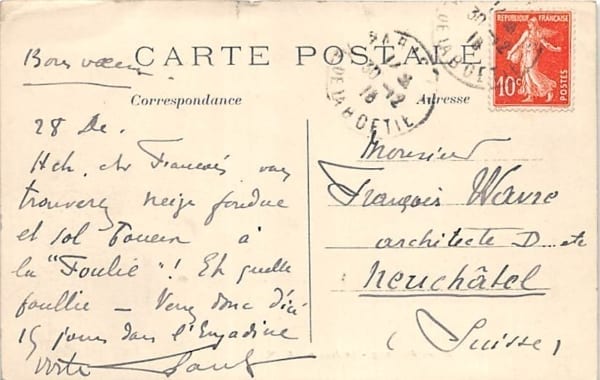 Bons vœux
CARTE POSTALE
Correspondance
Adresse
REPUBLIQUE FRANÇAISE
10c
POSTES
PARIS
30 -12
DE LA BOETIE
28 De.
cher François vous
trouverez neige fondue
et sol à
la "Foulie"! Eh quelle
foullie - Venez donc d'ici
15 jours dans l'Engadine
votre
Monsieur
François Wavre
architecte D
Neuchâtel
(Suisse)